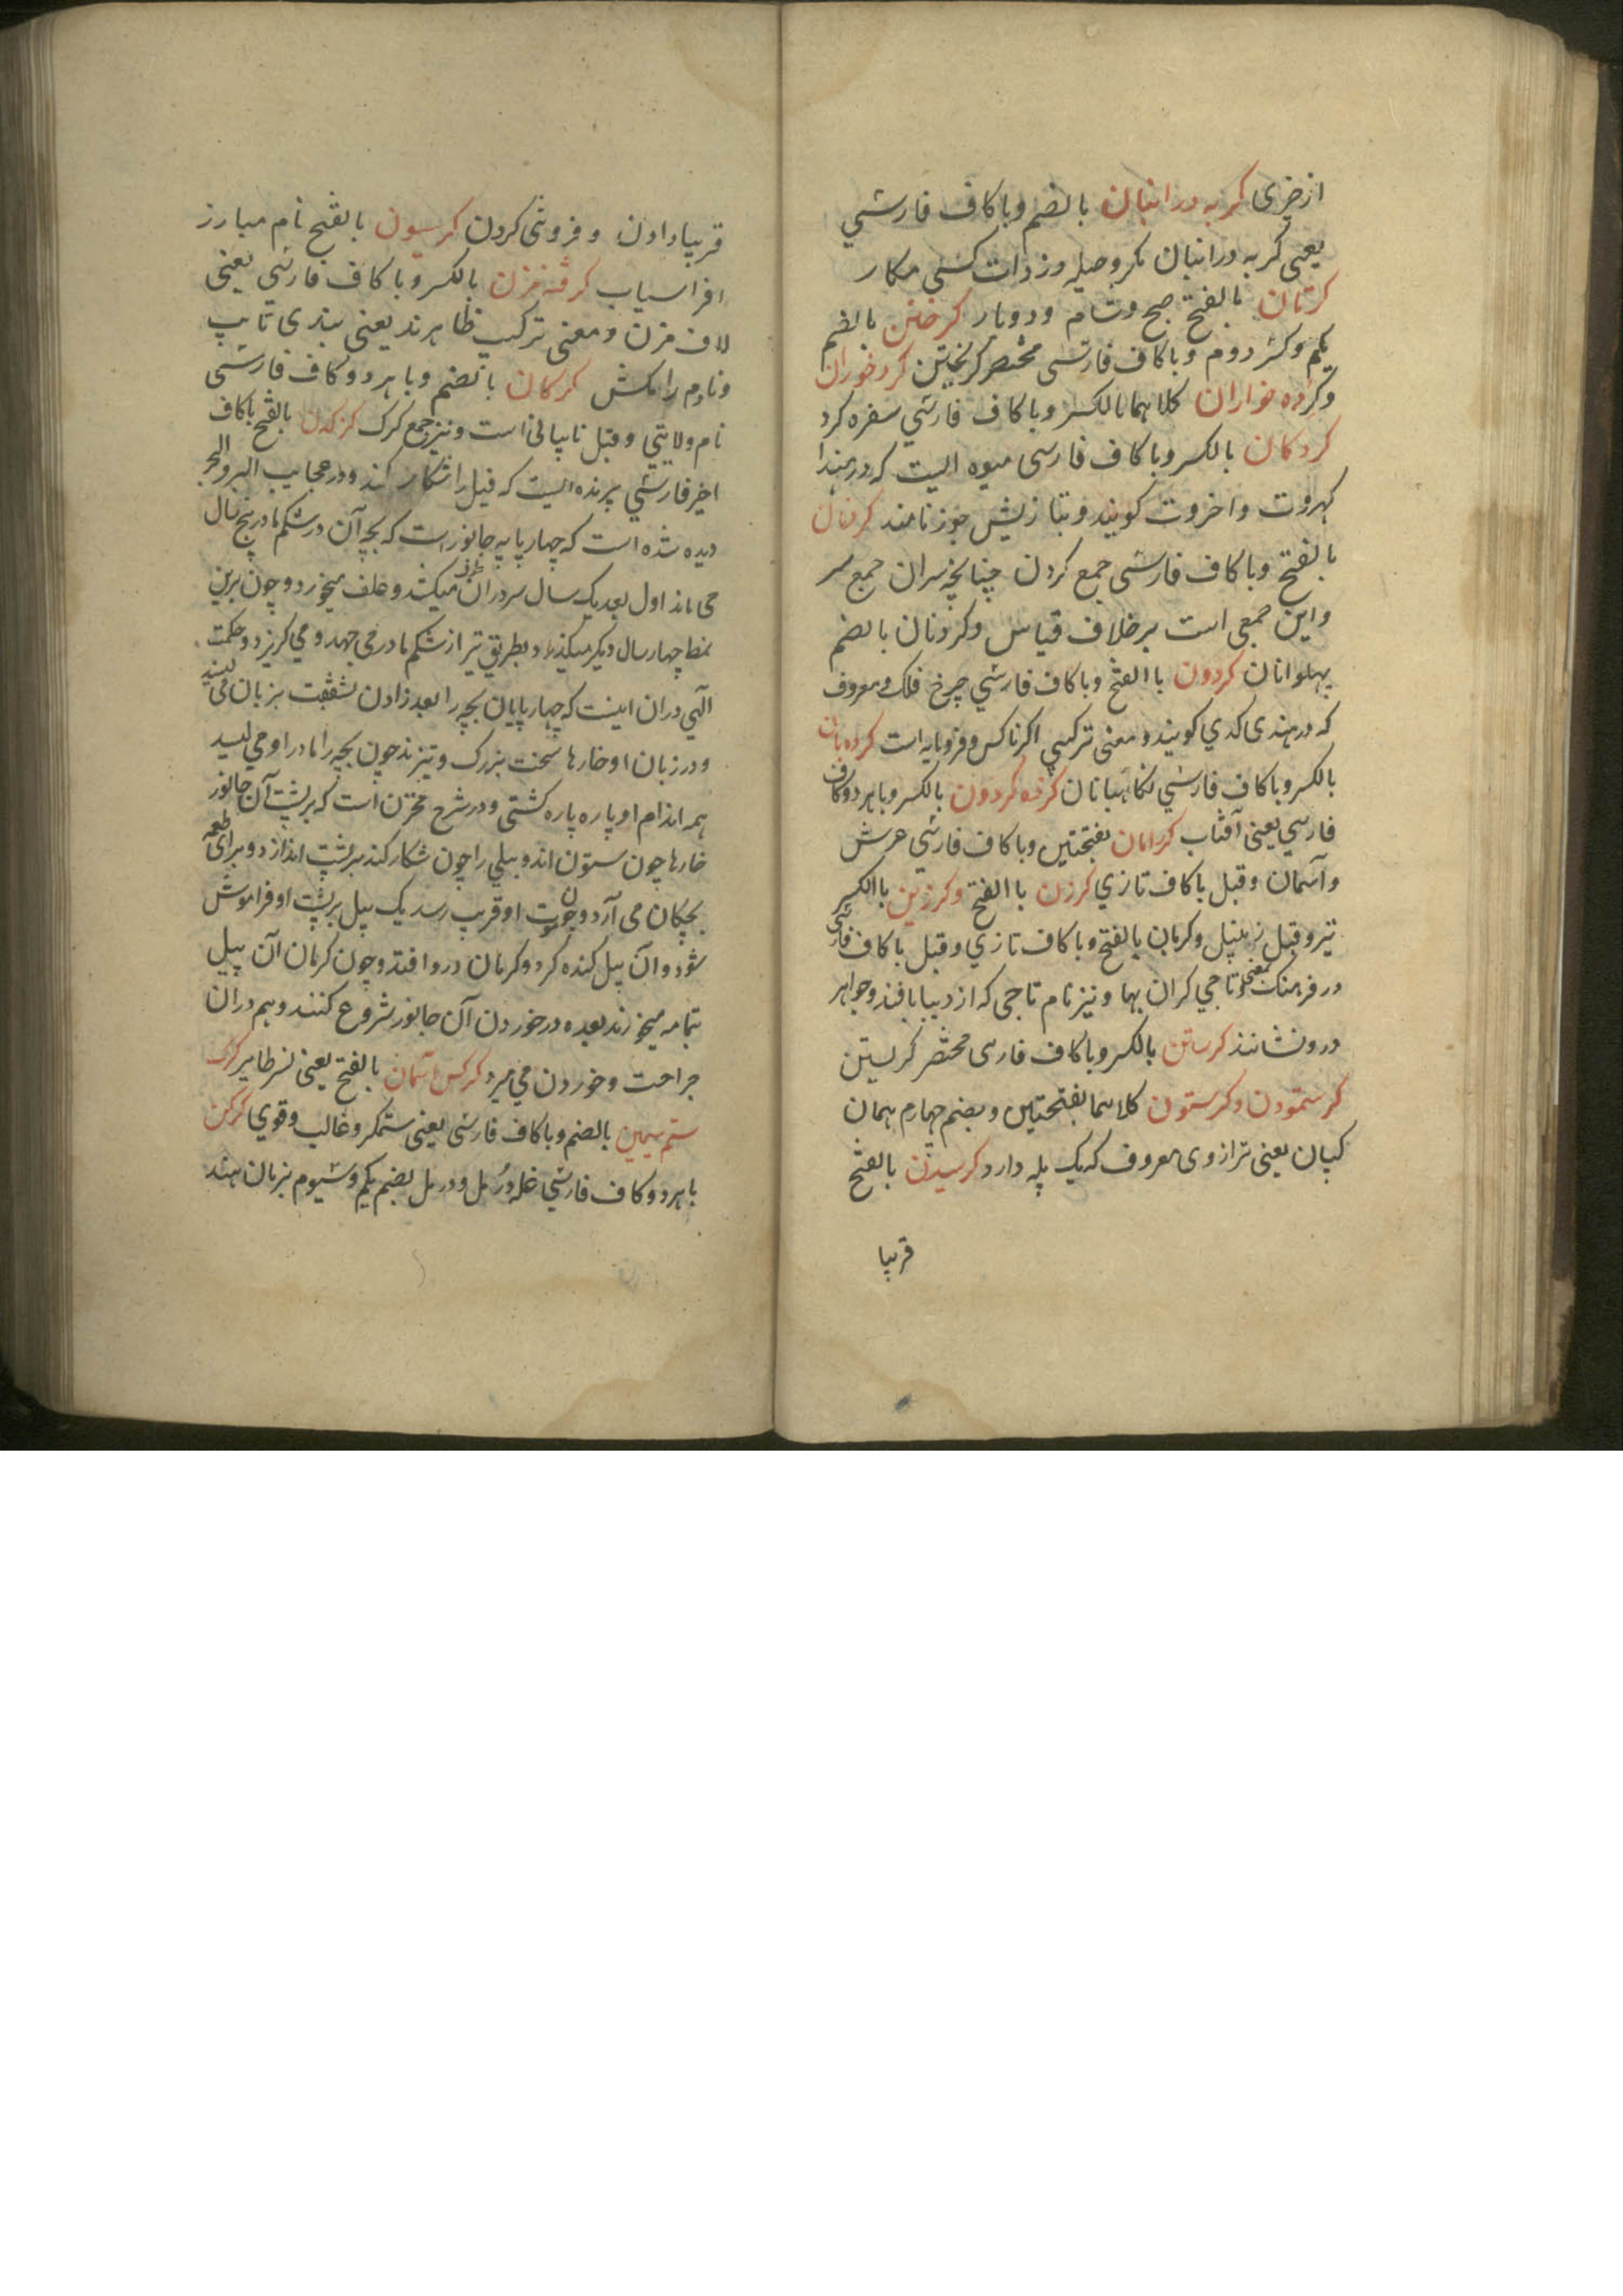 از چیزی کربه در انبان بالضم و با کاف فارسی
یعنی کربه در انبان مکر و حیله و زدات کسی مکار
کرتان بالفتح صبح و شام و دوبار کرختن بالضم
یکم و کسر دوم و با کاف فارسی مختصر کریختن کرد خوران
و کرده خواران کلاهما بالکسر و با کاف فارسی سفره کرد
کردکان بالکسر و با کاف فارسی میوه ایست که در هند
کهروت و اخروت کویند و بتازیش جوز نامند کردنان
بالفتح و با کاف فارسی جمع کردن چنانچه سران جمع سر
و این جمعی است بر خلاف قیاس و کردنان بالضم
پهلوانان کردون باالفتح و با کاف فارسی چرخ فلک و معروف
که در هندی کدی کویند و معنی ترکیبی اکر ناکس و فرومایه است کرده بان
بالکسر و با کاف فارسی نکاهبانان کرده کردون بالکسر و با هر دو کاف
فارسی یعنی آفتاب کرامان بفتحتین و با کاف فارسی عرش
و آسمان و قیل با کاف تازی کرزن باالفتح و کرزین باالکسر
تیر و قیل نیم تیر و کرمان بالفتح و با کاف تازی و قیل با کاف فارسی
در فرهنک بمعنی تاجی کران بها و نیز نام تاجی که از دیبا بافند و جواهر
درو نشانند کرستن بالکسر و با کاف فارسی مختصر کریستن
کرستمودن و کرستون کلاهما بفتحتین و بضم چهارم همان
کپان یعنی ترازوی معروف که یک پله دارد کرسیدن بالفتح
قریبا
قریبا دادن و فروتنی کردن کرسیون بالفتح نام مبارز
افراسیاب کرفه مزن بالکسر و با کاف فارسی یعنی
لاف مزن و معنی ترکیب ظاهرند یعنی بندی تایب
و نادم را مکش کرکان بالضم و با هر دو کاف فارسی
نام ولایتی و قیل نام بیابانی است و نیز جمع کرک کرکدن بالفتح با کاف
اخیر فارسی پرنده ایست که فیل را شکار کند و در عجایب البر و البحر
دیده شده است که چهارپایه جانور است که بچه آن در شکم مادر پنج سال
می ماند اول بعد یک سال سر در آن طرف میکند و علف میخورد و چون برین
نمط چهار سال دیکر میکذرد بطریق تیر از شکم مادر می جهد و می کریزد و حکمت
الهی در آن اینست که چهارپایان بچه را بعد زادن بشفقت بزبان می لیسند
و در زبان او خارها سخت بزرک و تیزند چون بچه را مادر او می لیسد
همه اندام او پاره پاره کشتی و در شرح مخزن است که بر پشت آن جانور
خارها چون ستون اند و پیلی را چون شکار کند بر پشت اندازد و برای طعمه
بچکان می آرد و چون موت او قریب رسد یک پیل بر پشت او فراموش
شود و آن پیل کنده کردد و کرمان درو افتد و چون کرمان آن پیل
بتمامه میخورند بعده در خوردن آن جانور شروع کنند و هم در آن
جراحت و خوردن می میرد کرکس آسمان بالفتح یعنی نسر طایر کرک
ستم سیمین بالضم و با کاف فارسی یعنی ستمکر و غالب و قوی کرکن
با هر دو کاف فارسی غله دُرمل و درمل بضم یکم و سیوم بزبان هند